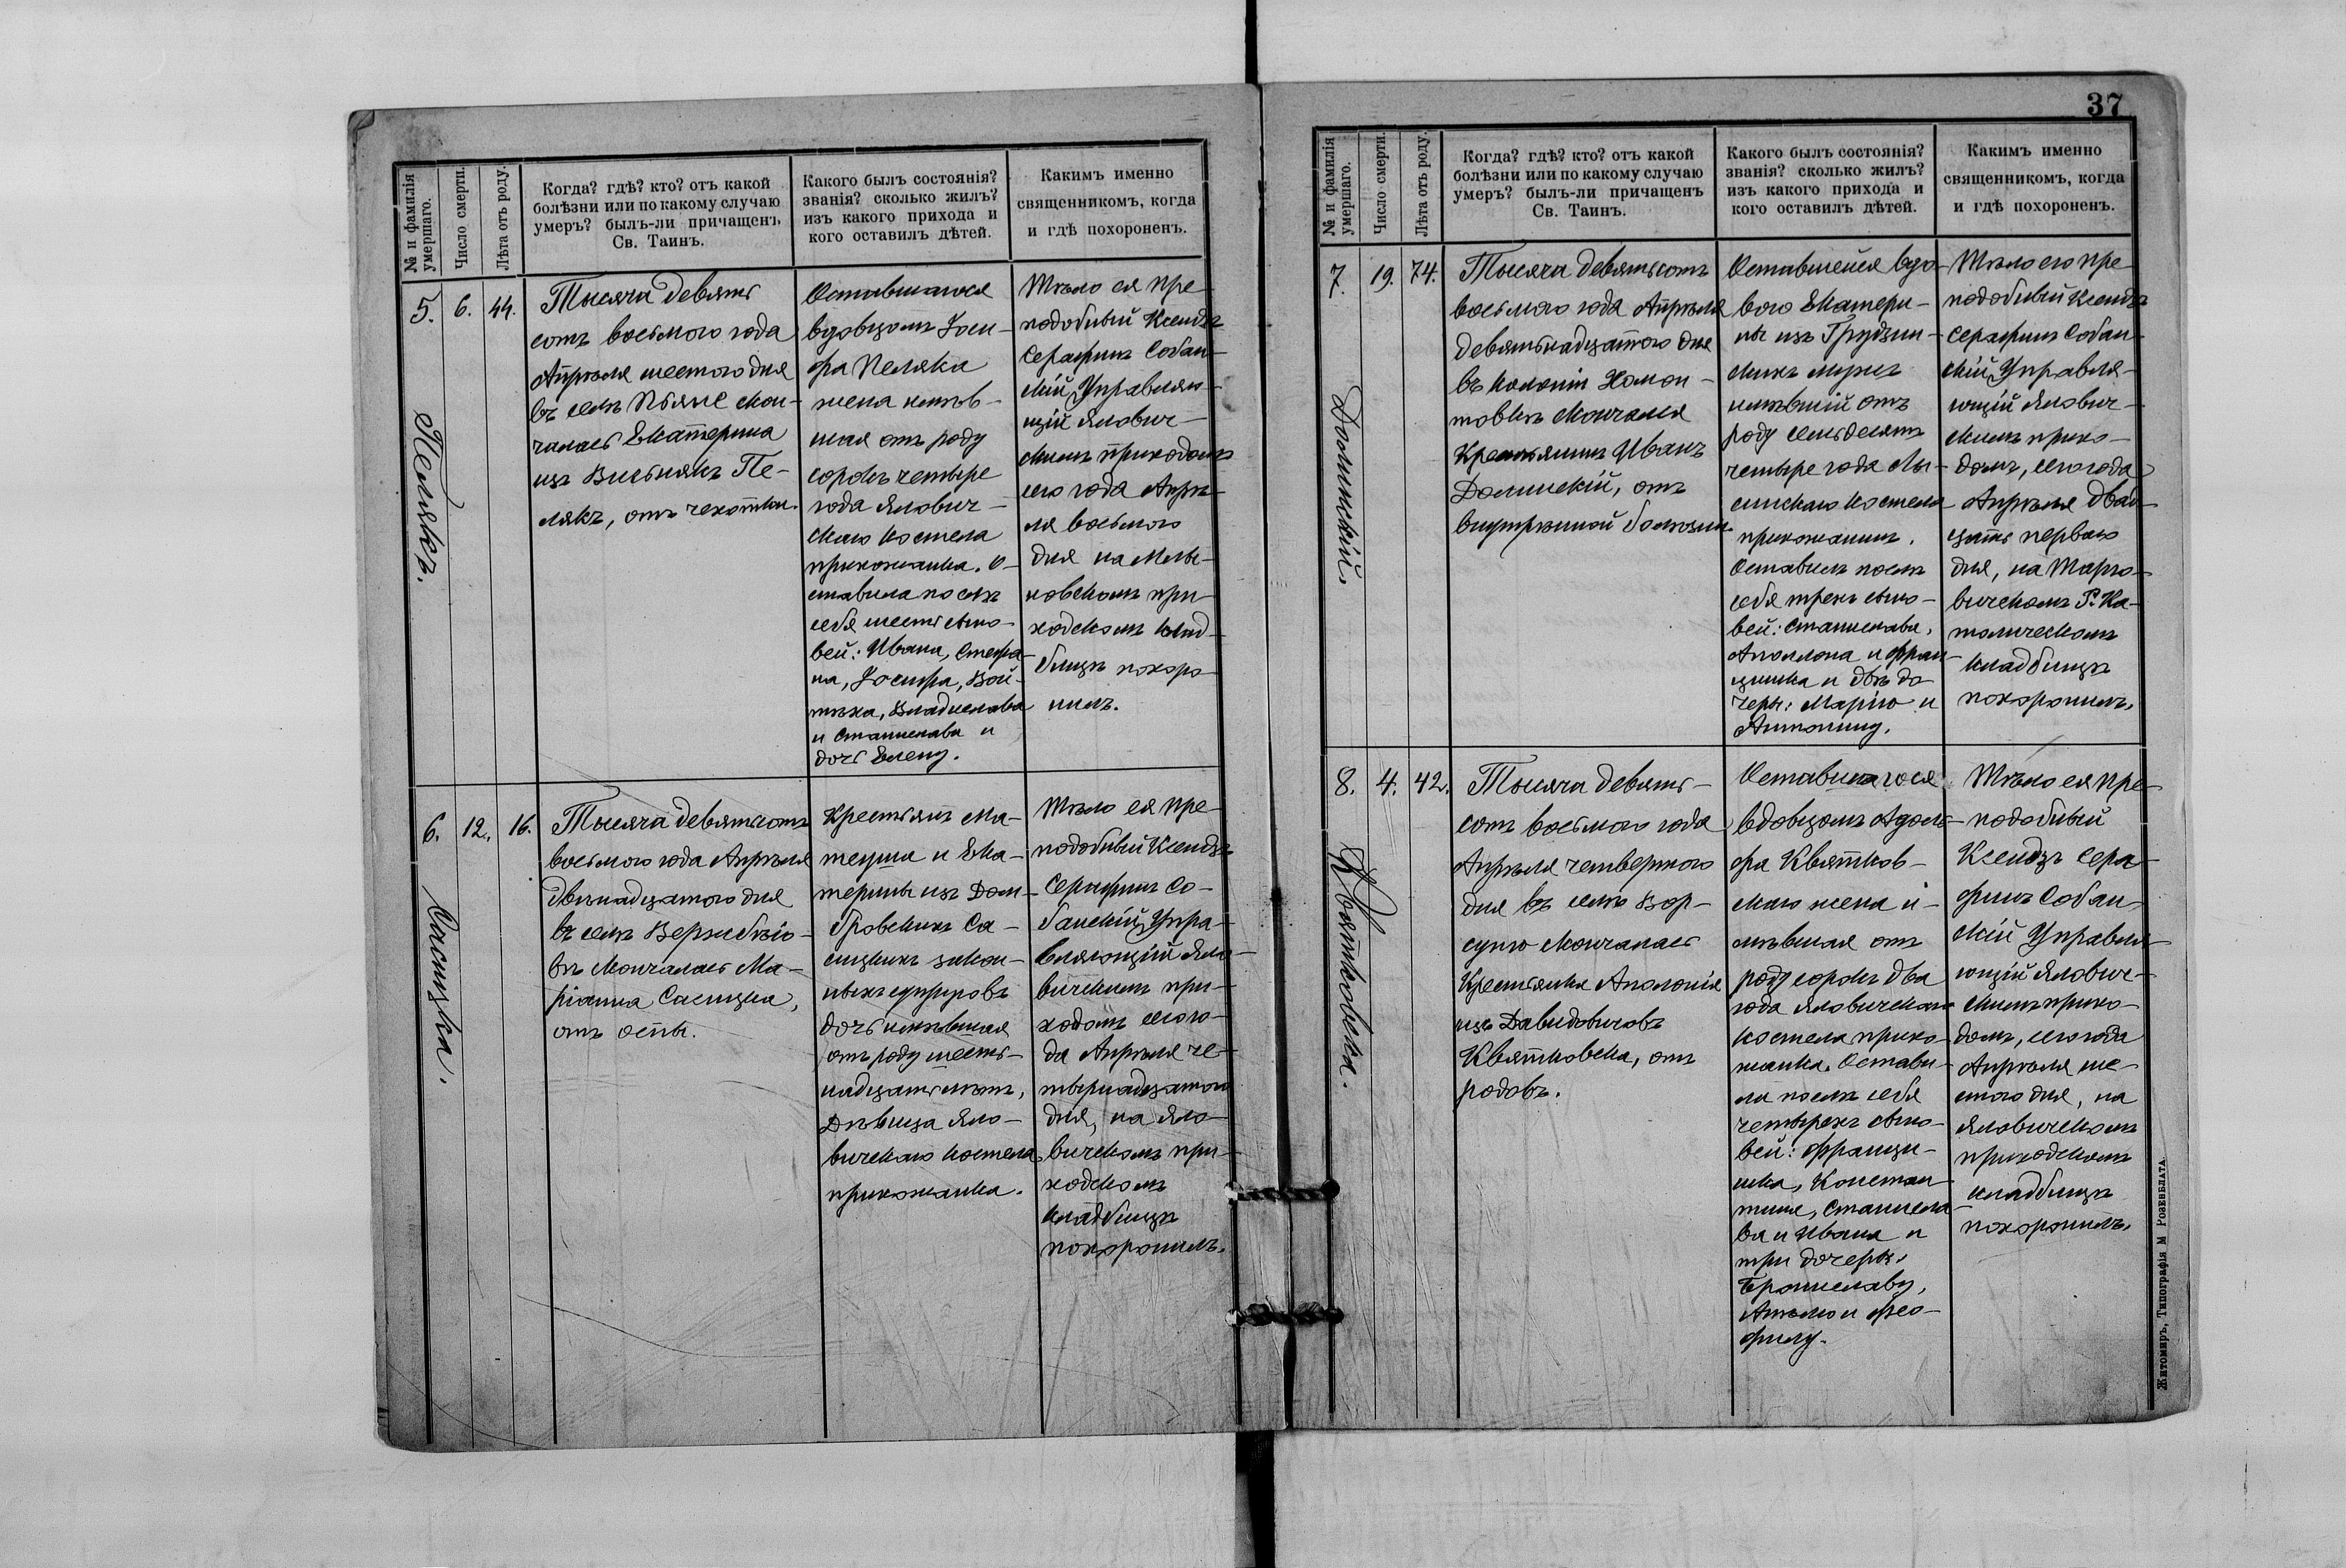 № и фамилія умершаго.
Число смерти.
Лѣта отъ роду.
Когда? гдѣ? кто? отъ какой
болѣзни или по какому случаю
умеръ? былъ-ли причащенъ
Св. Таинъ.
Какого былъ состоянія?
званія? сколько жилъ?
изъ какого прихода и
кого оставилъ дѣтей.
Какимъ именно
священникомъ, когда
и гдѣ похороненъ.
5.
6.
44.
Пелякъ.
Тысяча девять
сотъ восьмого года
Апрѣля шестого дня
въ селѣ Пьяне скон-
чалась Екатерина
изъ Пе-
лякъ, отъ чехотки.
Оставшагося
вдовцомъ Іоси-
фа Пеляка
жена имѣв-
шая отъ роду
сорокъ четыре
года Ялович-
скаго костела
прихожанка. О-
ставила послѣ
себя шесть сыно-
вей: Ивана, Стефа-
на, Іосифа, Вой-
тѣха, Владислава
и Станислава и
дочь Елену.
Тѣло ея пре-
подобный Ксендзъ
Серафимъ Собан-
скій Управляю-
щій Ялович-
скимъ приходомъ
сего года Апрѣ-
ля восьмого
дня на Млы-
новскомъ при-
ходскомъ клад-
бищѣ похоро-
нилъ.
6.
12.
16.
Сасицка.
Тысяча девятьсотъ
восьмого года Апрѣля
двѣнадцатого дня
въ селѣ Вербо-
вѣ скончалась Ма-
ріанна Сасицка,
отъ оспы.
Крестьянъ Ма-
теуша и Ека-
терины изъ Дом-
бровскихъ Са-
сицкихъ закон-
ныхъ супруговъ
дочь имѣвшая
отъ роду шест-
надцать лѣтъ,
Дѣвица Яло-
вичскаго костела
прихожанка.
Тѣло ея пре-
подобный Ксендзъ
Серафимъ Со-
банскій Упра-
вляющій Яло-
вичскимъ при-
ходомъ сего го-
да Апрѣля че-
тырнадцатого
дня, на Яло-
вичскомъ при-
ходскомъ
кладбищѣ
похоронилъ.
37
№ и фамилія умершаго.
Число смерти.
Лѣта отъ роду.
Когда? гдѣ? кто? отъ какой
болѣзни или по какому случаю
умеръ? былъ-ли причащенъ
Св. Таинъ.
Какого былъ состоянія?
званія? сколько жилъ?
изъ какого прихода и
кого оставилъ дѣтей.
Какимъ именно
священникомъ, когда
и гдѣ похороненъ.
7.
19.
74.
Долинскій.
Тысяча девятьсотъ
восьмого года Апрѣля
девятнадцатого дня
въ колоніи Хомон-
товкѣ скончался
Крестьянинъ Иванъ
Долинскій, отъ
внутренной болѣзни
Оставшейся вдо-
вою Екатери-
ны изъ Грудзин-
скихъ мужъ
имѣвшій отъ
роду семьдесятъ
четыре года Лы-
синскаго костела
прихожанинъ.
Оставилъ послѣ
себя трехъ сыно-
вей: Станислава,
Аполлона и Фран-
цишка и двѣ до-
чери: Марію и
Антонину.
Тѣло его пре-
подобный Ксендзъ
Серафимъ Собан-
скій Управля-
ющій Ялович-
скимъ прихо-
домъ, сего года
Апрѣля двад-
цать первого
дня, на Торго-
вичскомъ Р. Ка-
толическомъ
кладбищѣ
похоронилъ.
8.
4.
42.
Квятковска.
Тысяча девять-
сотъ восьмого года
Апрѣля четвертого
дня въ селѣ Вор-
сунѣ скончалась
Крестьянка Аполонія
изъ Давидовичовъ
Квятковска, отъ
родовъ.
Оставшагося
вдовцомъ Адоль-
фа Квятков-
скаго жена и-
мѣвшая отъ
роду сорокъ два
года Яловичскаго
костела прихо-
жанка. Остави-
ла послѣ себя
четырехъ сыно-
вей: Франци-
шка, Констан-
тина, Станисла-
ва и Ивана и
три дочери:
Брониславу,
Анелю и Фео-
филу.
Тѣло ея пре-
подобный
Ксендзъ Сера-
фимъ Собан-
скій Управля-
ющій Ялович-
скимъ прихо-
домъ, сего года
Апрѣля ше-
стого дня, на
Яловичскомъ
приходскомъ
кладбищѣ
похоронилъ.
Житомиръ, Типографія М Розенблата.